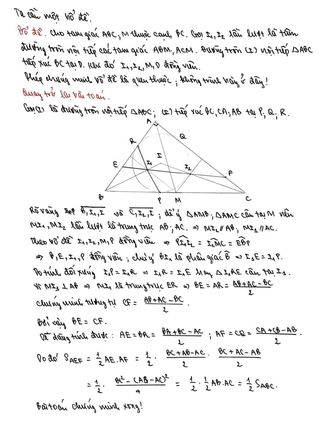 Ta cần một bổ đề.
Bổ đề. Cho tam giác ABC, M thuộc cạnh BC. Gọi I₁, I₂ lần lượt là tâm
đường tròn nội tiếp các tam giác ABM, ACM. Đường tròn (I) nội tiếp △ABC
tiếp xúc BC tại D. Khi đó I₁, I₂, M, D đồng viên.
Phép chứng minh bổ đề là quen thuộc, không trình bày ở đây!
Quay trở lại bài toán.
Gọi (I) là đường tròn nội tiếp △ABC; (I) tiếp xúc BC, CA, AB tại P, Q, R.
A
R
Q
E
I₁
I
I₂
F
B
P
M
C
Rõ ràng B, I₁, I và C, I₂, I; để ý △AMB, △AMC cân tại M nên
MI₁, MI₂ lần lượt là trung trực AB, AC. ⇒ MI₁ ⊥ AB, MI₂ ⊥ AC.
Theo bổ đề I₁, I₂, M, P đồng viên ⇒
⇒ B, E, I₁, P đồng viên; chú ý BI₁ là phân giác B ⇒ I₁E = I₁P.
Do tính đối xứng I₁P = I₁R ⇒ I₁R = I₁E hay △I₁RE cân tại I₁.
Vì MI₁ ⊥ AB ⇒ MI₁ là trung trực ER ⇒ BE = AR = (AB+AC-BC)/2
Chứng minh tương tự CF = (AB+AC-BC)/2
Bởi vậy BE = CF.
Dễ dàng tính được: AE = BR = (BA+BC-AC)/2; AF = CQ = (CA+CB-AB)/2.
Do đó S_AEF = 1/2 AE.AF = 1/2 · (BC+AB-AC)/2 · (BC+AC-AB)/2
= 1/2 · (BC²-(AB-AC)²)/4 = 1/2 · 1/2 AB.AC = 1/2 S_ABC.
Bài toán chứng minh xong!